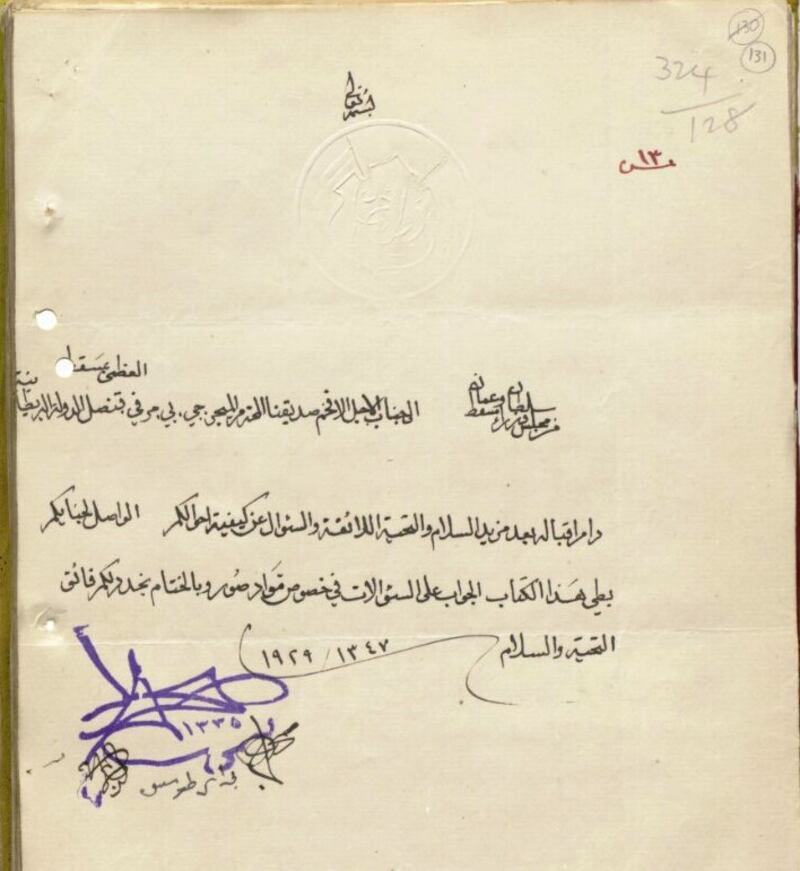 130
131
324
128
١٣
بسمه تعالى
من مجلس وزراء سلطان مسقط وعمان
الى جناب الاجل الافخم صديقنا المحترم الميجر جي. بي. مرفي قنصل الدولة البريطانية
العظمى بمسقط
دام اقباله بعد مزيد السلام والتحية اللائقة والسئوال عن كيفية احوالكم الواصل لجنابكم
بطي هذا الكتاب الجواب على السئوالات في خصوص مواد صور وبالختام نجدد لكم فائق
التحية والسلام
١٣٤٧ / ١٩٢٩
١٣٣٥